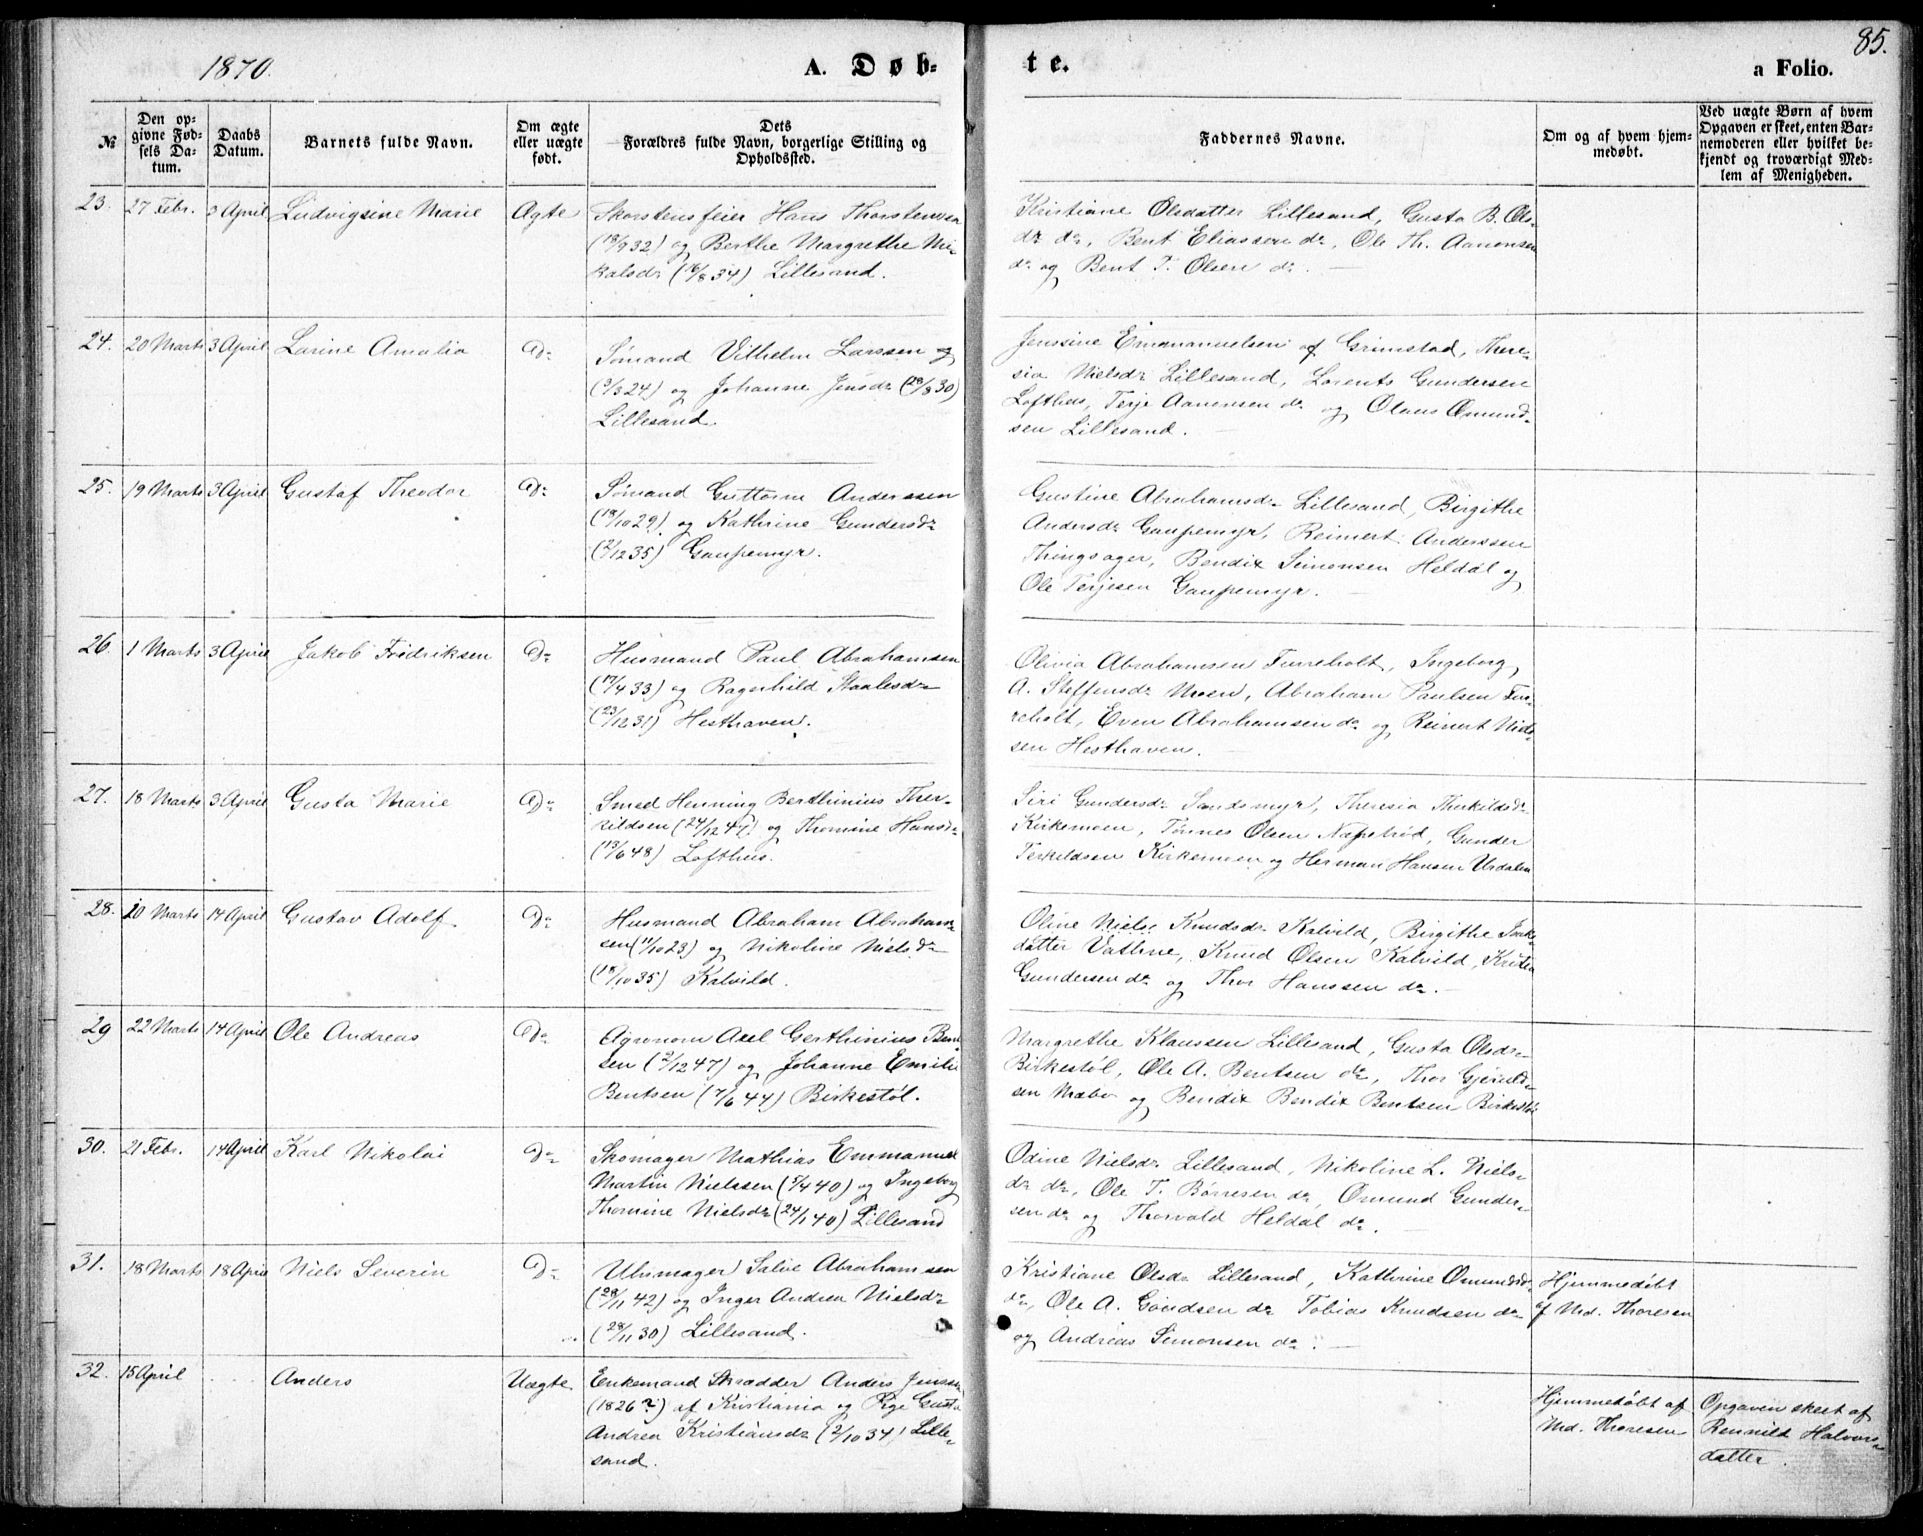 1870.
A. Døb-
te.
a Folio.
85.
№
Den op-
givne Fød-
sels Da-
tum.
Daabs
Datum.
Barnets fulde Navn.
Om ægte
eller uægte
født.
Dets
Forældres fulde Navn, borgerlige Stilling og
Opholdssted.
Faddernes Navne.
Om og af hvem hjem-
medøbt.
Ved uægte Børn af hvem
Opgaven er skeet, enten Bar-
nemoderen eller hvilket be-
kjendt og troværdigt Med-
lem af Menigheden.
23. 27 Febr. 3 April Ludvigsine Marie Ægte
Skorstensfeier Hans Thorstensen
(18/9 32) og Berthe Margrethe Mi-
kalsdr (16/8 34) Lillesand.
Kristiane Olsdatter Lillesand, Gusta B. Ols-
dr do, Bent Eliassen do, Ole Th. Aanensen
do og Bent T. Olsen do. —
24. 20 Marts 3 April Larine Amalia Do
Sømand Vilhelm Larssen og
(9/3 24) og Johanne Jensdr (28/8 30)
Lillesand.
Jensine Emanuelsen af Grimstad, There-
sia Nielsdr Lillesand, Lorents Gundersen
Lofthus, Terje Aanensen do og Olaus Omund-
sen Lillesand. —
25. 19 Marts 3 April Gustaf Theodor Do
Sømand Guttorm Anderssen
(18/10 29) og Kathrine Gundersdr
(2/12 35) Gaupemyr.
Gustine Abrahamsdr Lillesand, Birgithe
Andersdr Gaupemyr, Reinert Anderssen
Thingsager, Bendix Simonsen Heldal og
Ole Terjesen Gaupemyr. —
26. 1 Marts 3 April Jakob Fredriksen Do
Husmand Paul Abrahamsen
(17/4 33) og Ragnhild Staalesdr
(23/12 31) Hesthaven.
Olivia Abrahamsen Furreholt, Ingeborg
A. Steffensdr Moen, Abraham Paulsen Fur-
reholt, Even Abrahamsen do og Reinert Niel-
sen Hesthaven. —
27. 18 Marts 3 April Gusta Marie Do
Smed Henning Berthinius Ther-
kildsen (24/12 47) og Thomine Hansdr
(13/6 48) Lofthus.
Siri Gundersdr Sandsmyr, Theresia Therkildsdr
Kirkemoen, Tønnes Olsen Næperød, Gunder
Terkildsen Kirkemoen og Herman Hansen Urdalen
28. 20 Marts 14 April Gustav Adolf Do
Husmand Abraham Abraham-
sen (11/10 23) og Nikoline Nielsdr
(18/10 35) Kalvild.
Oline Niels Knudsdr Kalvild, Birgithe
datter Vathne, Knud Olsen Kalvild,
Gundersen do og Thor Hanssen do. —
29 22 Marts 14 April Ole Andreas Do
Agronom Axel Gerthinius Bent-
sen (2/12 47) og Johanne Emilie
Bentsen (7/6 44) Birkestøl.
Margrethe Klaussen Lillesand, Gusta Olsdr
Birkestøl, Ole A. Bentsen do, Thor Gjeruld-
sen Mæbø og Bendix Bendix Bentsen Birkestøl
30. 21 Febr. 14 April Karl Nikolai Do
Skomager Mathias Emmanuel
Martin Nielssen (5/4 40) og Ingeborg
Thomine Nielsdr (24/1 40) Lillesand
Odine Nielsdr Lillesand, Nikoline L. Niels-
dr do, Ole T. Børresen do, Omund Gunder-
sen do og Thorvald Heldal do. —
31. 18 Marts 18 April Niels Severin Do
Uhrmager Salve Abrahamsen
(28/11 42) og Inger Andrea Nielsdr
(28/11 30) Lillesand.
Kristiane Olsdr Lillesand, Kathrine Omundsdr
do, Ole A. Gundsen do Tobias Knudsen do
og Andreas Simonsen do. —
Hjemmedøbt
af Md. Thoresen
32. 15 April Anders Uægte
Enkemand Skrædder Anders Jenssen
(1826?) af Kristiania og Pige Gusta
Andrea Kristiansdr (2/10 34) Lille-
sand.
Hjemmedøbt af
Md. Thoresen
Opgaven skeet af
Rennild Halvors-
datter.